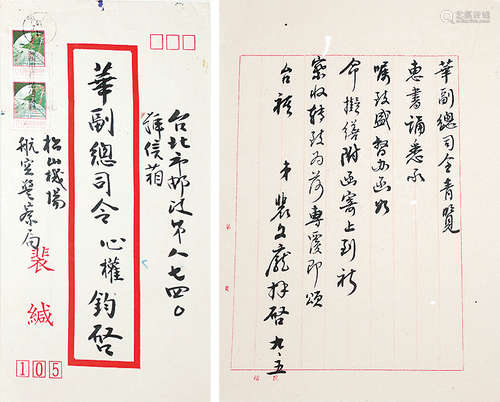 台北市郵政第八七四〇
箱信箱
華副總司令 心權 鈞啓
松山機場
航空警察局
裴 緘
105
華副總司令青覽
惠書誦悉承
囑致盛智办函如
命擬繕附函寄上到祈
察收轉致為荷專覆即頌
台祺
弟 裴文龐拜啓 九、五